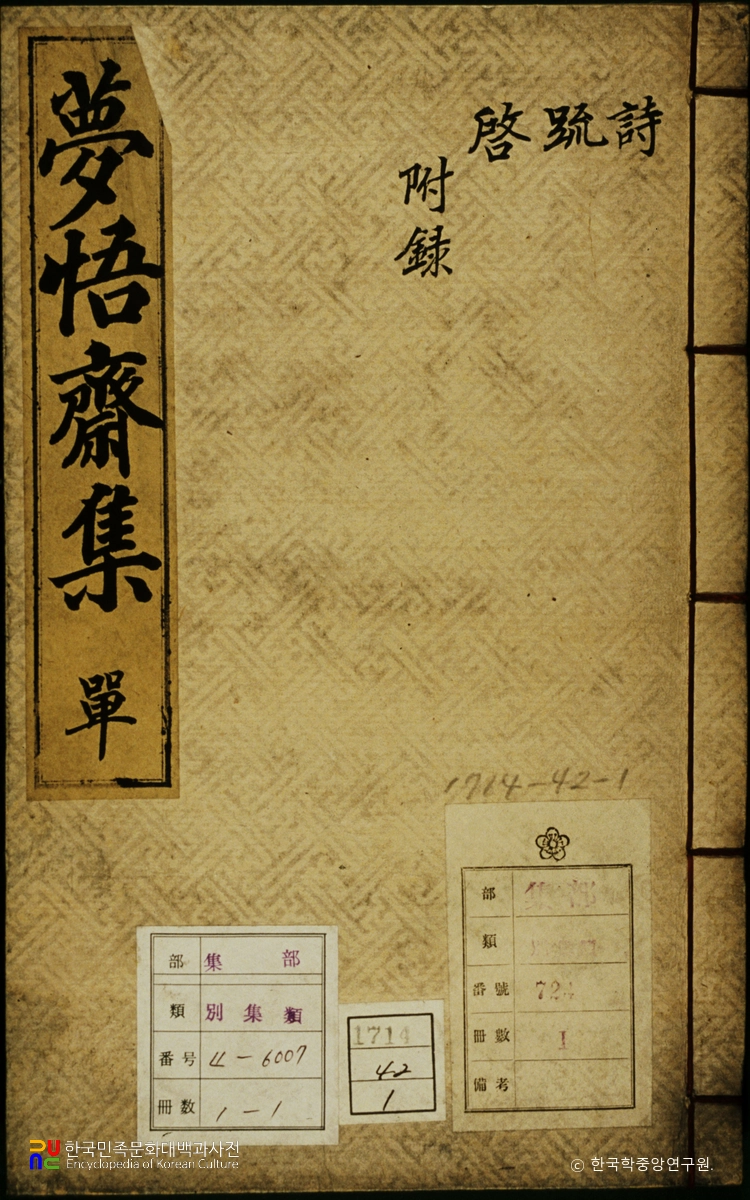 夢悟齋集 單
詩
疏
啓
附錄
1714-42-1
部 集部
類
番號 724
冊數 1
備考
部 集部
類 別集類
番号 4-6007
冊數 1-1
1714
42
1
한국민족문화대백과사전
Encyclopedia of Korean Culture
© 한국학중앙연구원.